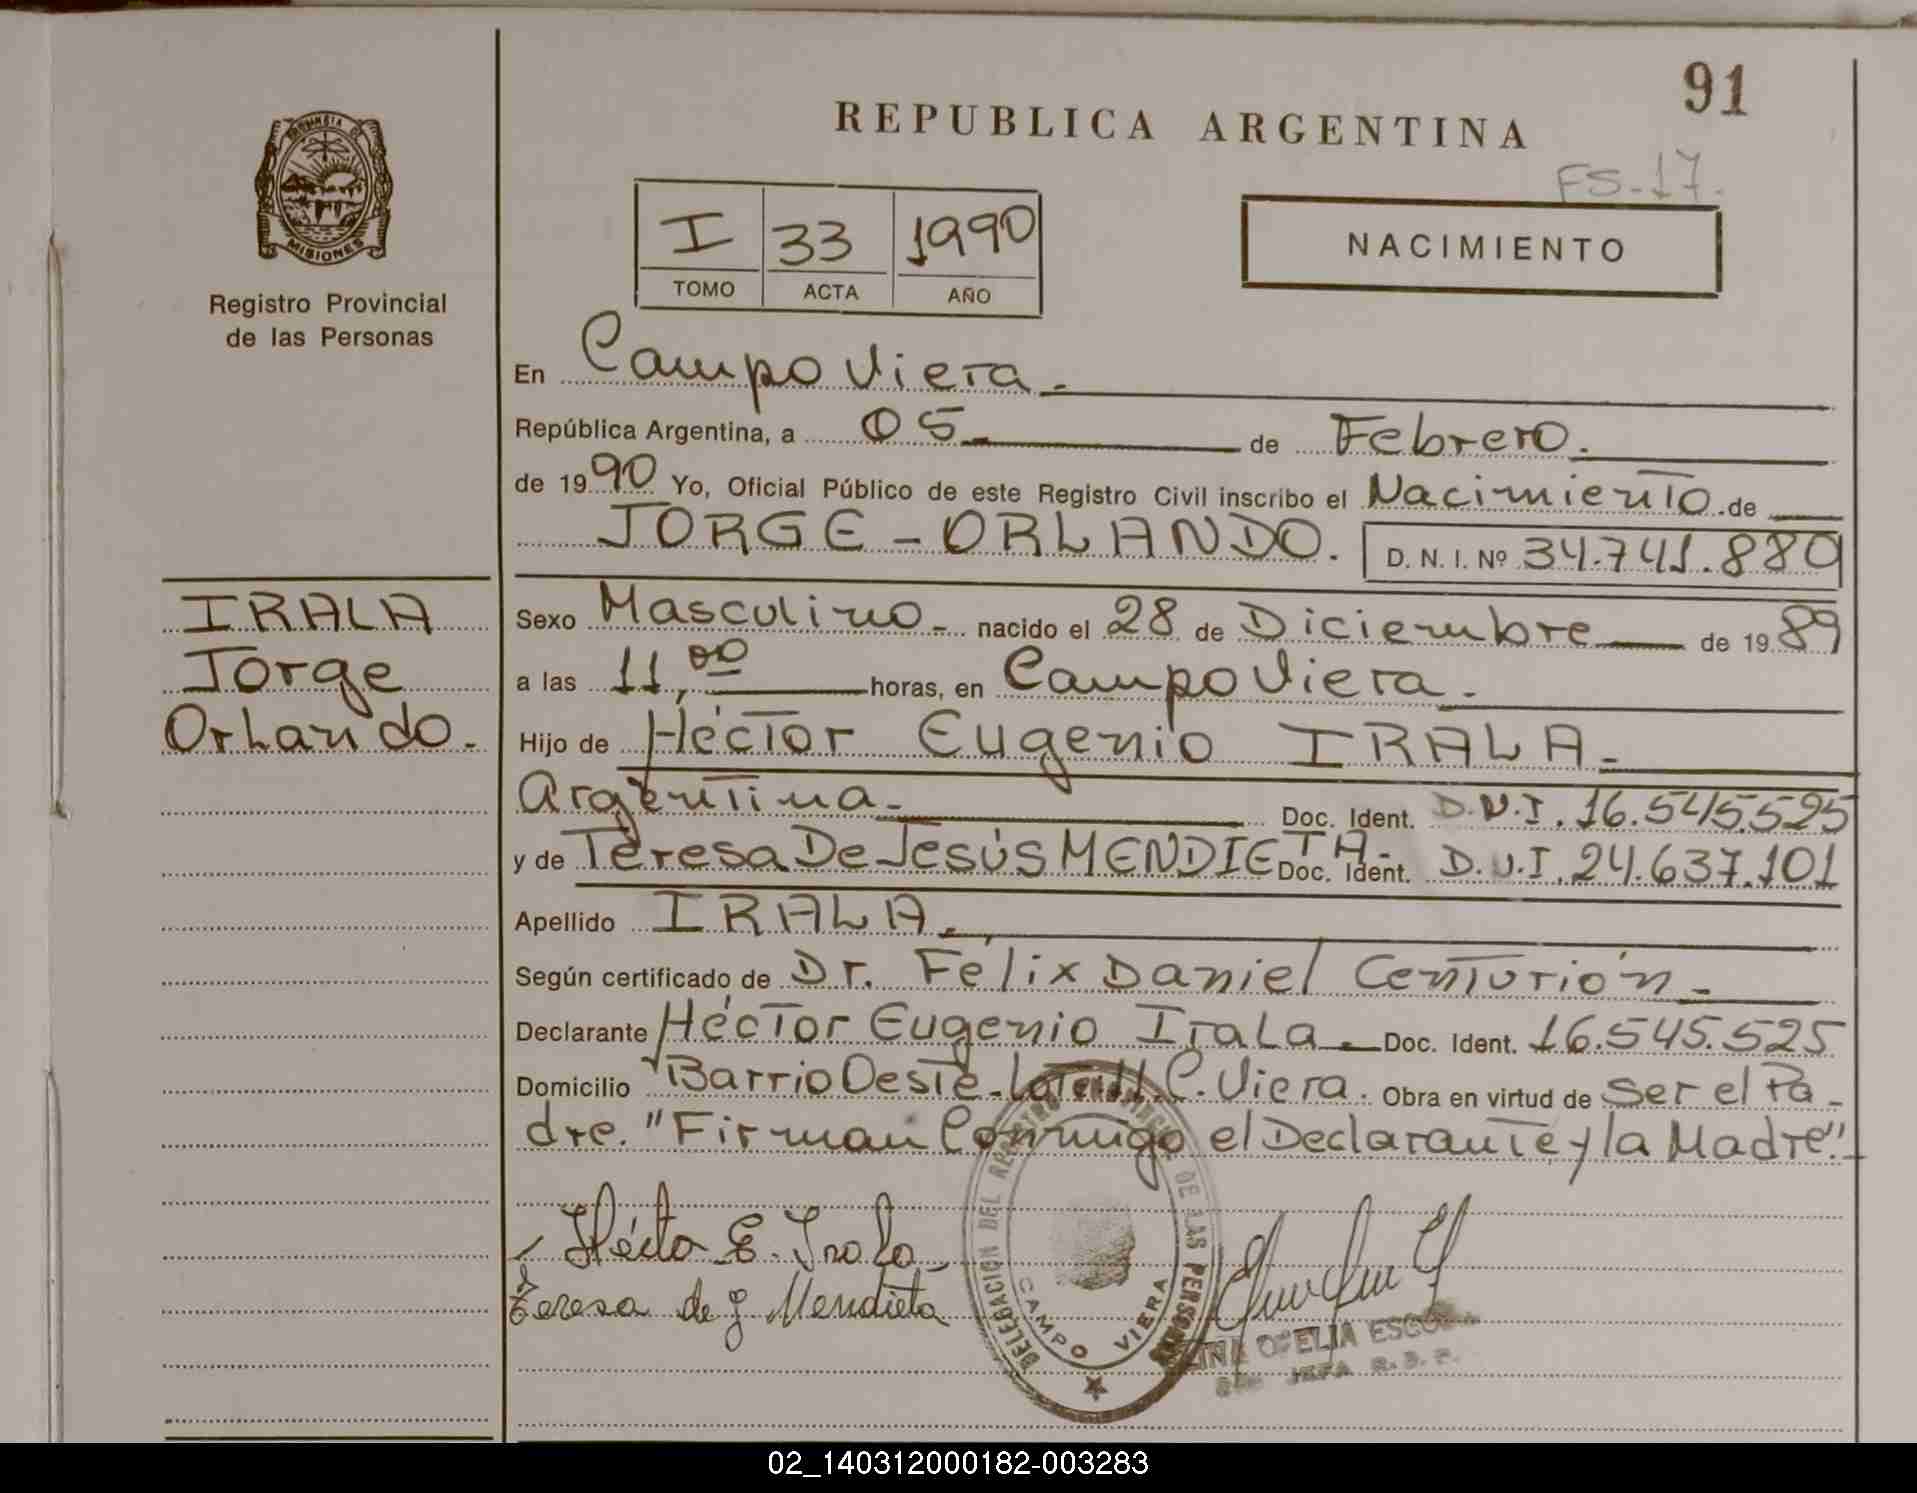 91
REPUBLICA ARGENTINA
FS-17.
PROVINCIA D
MISIONES
Registro Provincial
de las Personas
I 33 1990
TOMO ACTA AÑO
NACIMIENTO
En Campo Viera.
República Argentina, a 05 de Febrero.
de 1990 Yo, Oficial Público de este Registro Civil inscribo el Nacimiento de
JORGE-ORLANDO. D. N. I. Nº 34.741.880
IRALA
Jorge
Orlando.
Sexo Masculino nacido el 28 de Diciembre de 1989
a las 11,00 horas, en Campo Viera.
Hijo de Héctor Eugenio IRALA
Argentina Doc. Ident. D.N.I. 16.545.525
y de Teresa De Jesús MENDIETA Doc. Ident. D.N.I. 24.637.101
Apellido IRALA.
Según certificado de Dr. Félix Daniel Centurión
Declarante Héctor Eugenio Irala Doc. Ident. 16.545.525
Domicilio Barrio Oeste-Lote 11 C. Viera. Obra en virtud de ser el Pa-
dre. "Firman Conmigo el Declarante y la Madre"
Hécto E. Irala
Teresa de J Mendieta
DELEGACION DEL REGISTRO PROVINCIAL DE LAS PERSONAS
CAMPO VIERA
OFELIA
JEFA R. P.
02_140312000182-003283